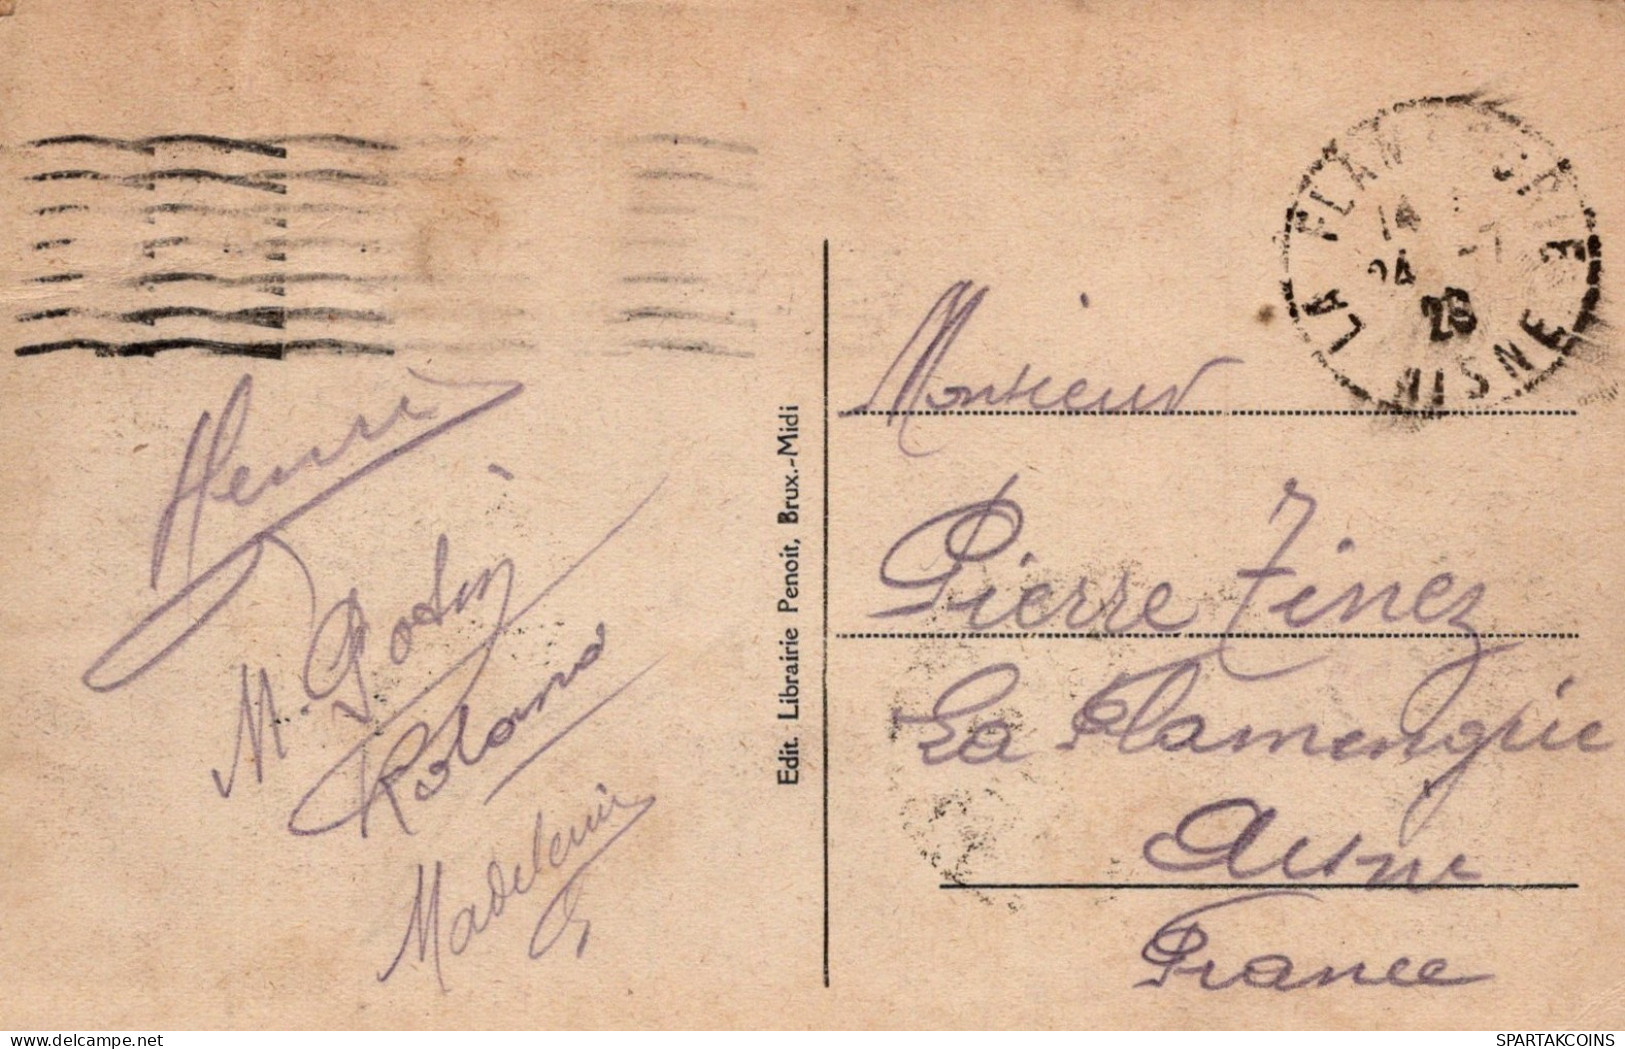 LA FLAMENGRIE
14
24 -7
26
AISNE
Henri
M. Godin
Madeleine
G
Edit. Librairie Penoit, Brux.-Midi
Monsieur
Pierre Finez
La Flamengrie
Aisne
France
www.delcampe.net
SPARTAKCOINS